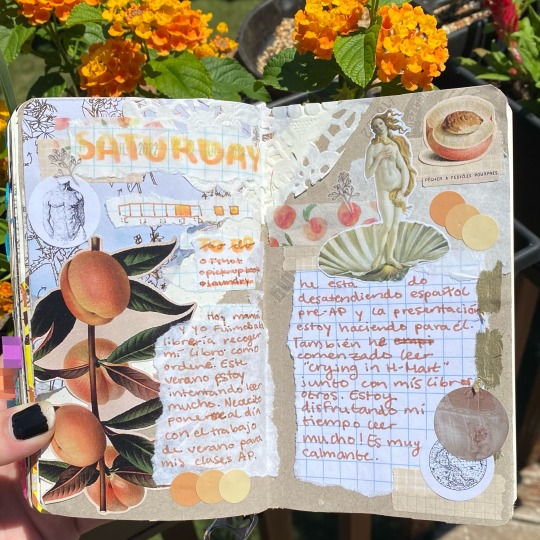 SATURDAY
to do
Print
pickup book
Laundry
Hoy, mamá
y yo fuimos a la
librería recoger
mi libro como
ordené. Este
verano estoy
intentando leer
mucho. Necesito
ponerme al día
con el trabajo
de verano para
mis clases AP.
PÊCHER A FEUILLES POURPRES.
he esta do
desatendiendo español
pre-AP y la presentación
estoy haciendo para él.
También he
comenzado leer
"Crying in H-Mart"
junto con mis libros
otros. Estoy
disfrutando mi
tiempo leer
mucho! Es muy
calmante.